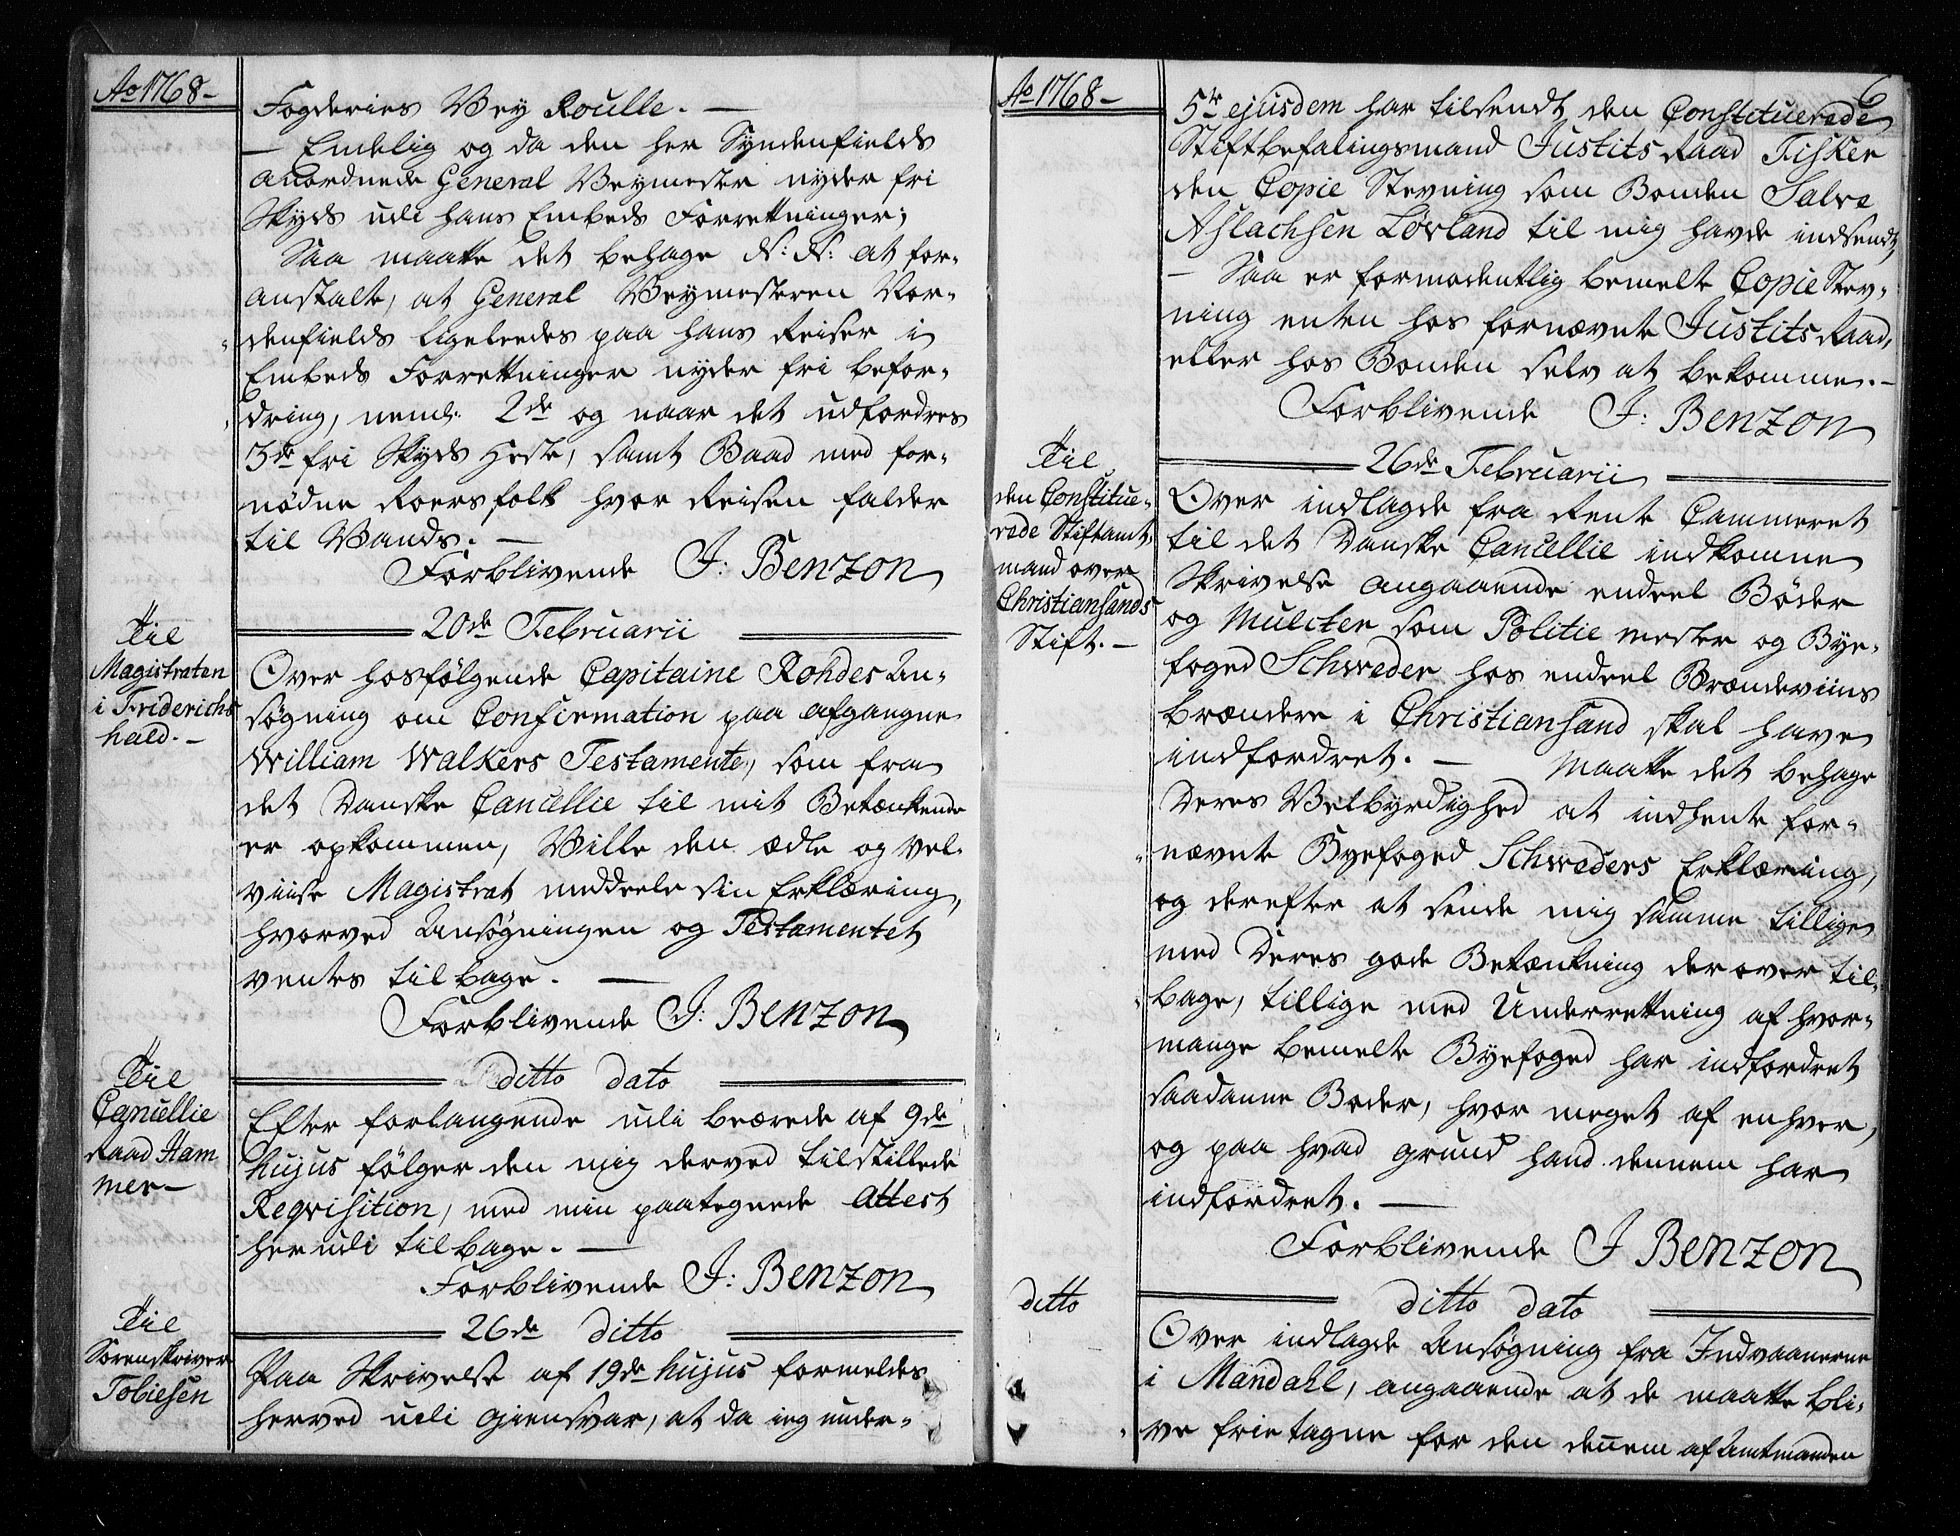 Ao 1768-
Fogderies Vey Roulle. —
— Endelig og da den her Syndenfields
anordnede General Veymester nyder fri
Skyds udi hans Embeds Forrettninger;
Saa maatte det behage N: N: at for-
anstalte, at General Veymesteren Nor-
denfields ligeleedes paa hans Reiser i
Embeds Forrettninger nyder fri befor-
dring, neml: 2de og naar det udfordres
3de fri Skyds Heste, samt Baad med for-
nødne Roersfolk hvor Reisen falder
til Vands. —
Forblivende J: Benzon
Til
Magistraten
i Friderichs
hald. —
20de Februarii
Over hosfølgende Capitaine Rohdes An-
søgning om Confirmation paa afgangne
William Walkers Testamente, som fra
det Danske Cancellie til mit Betænkende
er opkommen, Wille den ædle og vel-
viise Magistrat meddeele sin Erklæring,
hvorved Ansøgningen og Testamentet
ventes tilbage. —
Forblivende J: Benzon
Til
Cancellie
Raad Ham
mer —
ditto dato
Efter forlangende udi beærede af 9de
hujus følger den mig derved tilstillede
Reqvisition, med min paategnede Attest
herudi tilbage. —
Forblivende J: Benzon
Til
Sorenskriver
Tobiesen
26de ditto
Paa Skrivelse af 19de hujus formeldes
herved udi giensvar, at da ieg under-
Ao 1768-
6
5te ejusdem har tilsendt den Constituerede
Stiftbefalingsmand Justits Raad Fisker
den Copie Stevning som Bonden Salve
Aslachsen Løvland til mig havde indsendt,
— Saa er formodentlig bemelte Copie Stev-
ning enten hos fornævnte Justits Raad,
eller hos Bonden selv at bekomme. —
Forblivende J: Benzon
Til
den Constitue-
rede Stiftamt-
mand over
Christiansands
Stift. —
26de Februarii
Over indlagde fra Rente Cammeret
til det Danske Cancellie indkomne
Skrivelse angaaende endeel Bøder
og Mulcter som Politie mester og Bye-
foged Schweder hos endeel Brændeviins
brændere i Christiansand skal have
indfordret. — Maatte det behage
Deres Velbyrdighed at indhente for-
nævnte Byefoged Schweders Erklæring,
og derefter at sende mig samme tillige
med Deres gode Betænkning derover til-
bage, tillige med Underrettning af hvor-
mange bemelte Byefoged har indfordret
saadanne Bøder, hvor meget af enhver,
og paa hvad grund hand dennem har
indfordret. —
Forblivende J Benzon
ditto
ditto dato
Over indlagde Ansøgning fra Indvaanerne
i Mandahl, angaaende at de maatte bli-
ve frietagne for den dennem af Amtmanden